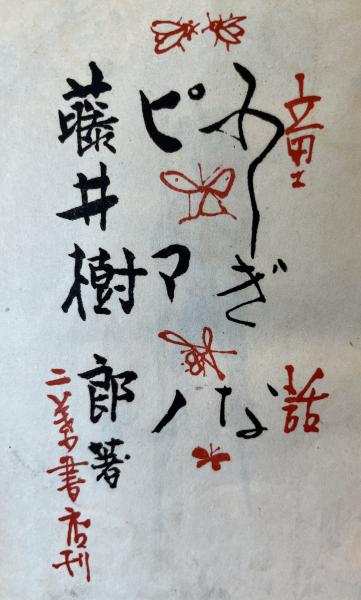 童話
ふしぎな
ピアノ
藤井樹郎著
二葉書店刊